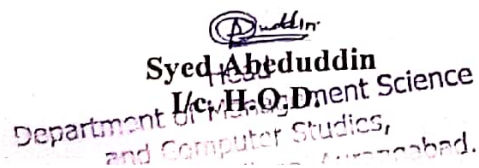 Syed Abeduddin
Head
I/c. H.O.D.
Department of Management Science
and Computer Studies,
Aurangabad.